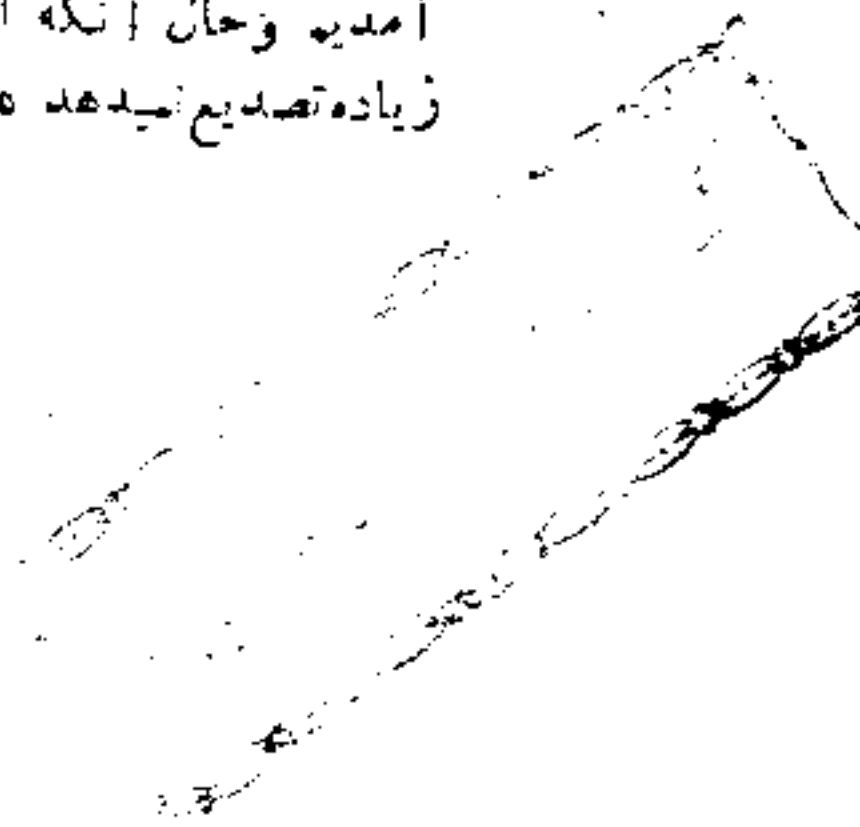 آمدیم وحال آنکه
زیاده تصدیع نمیدهد